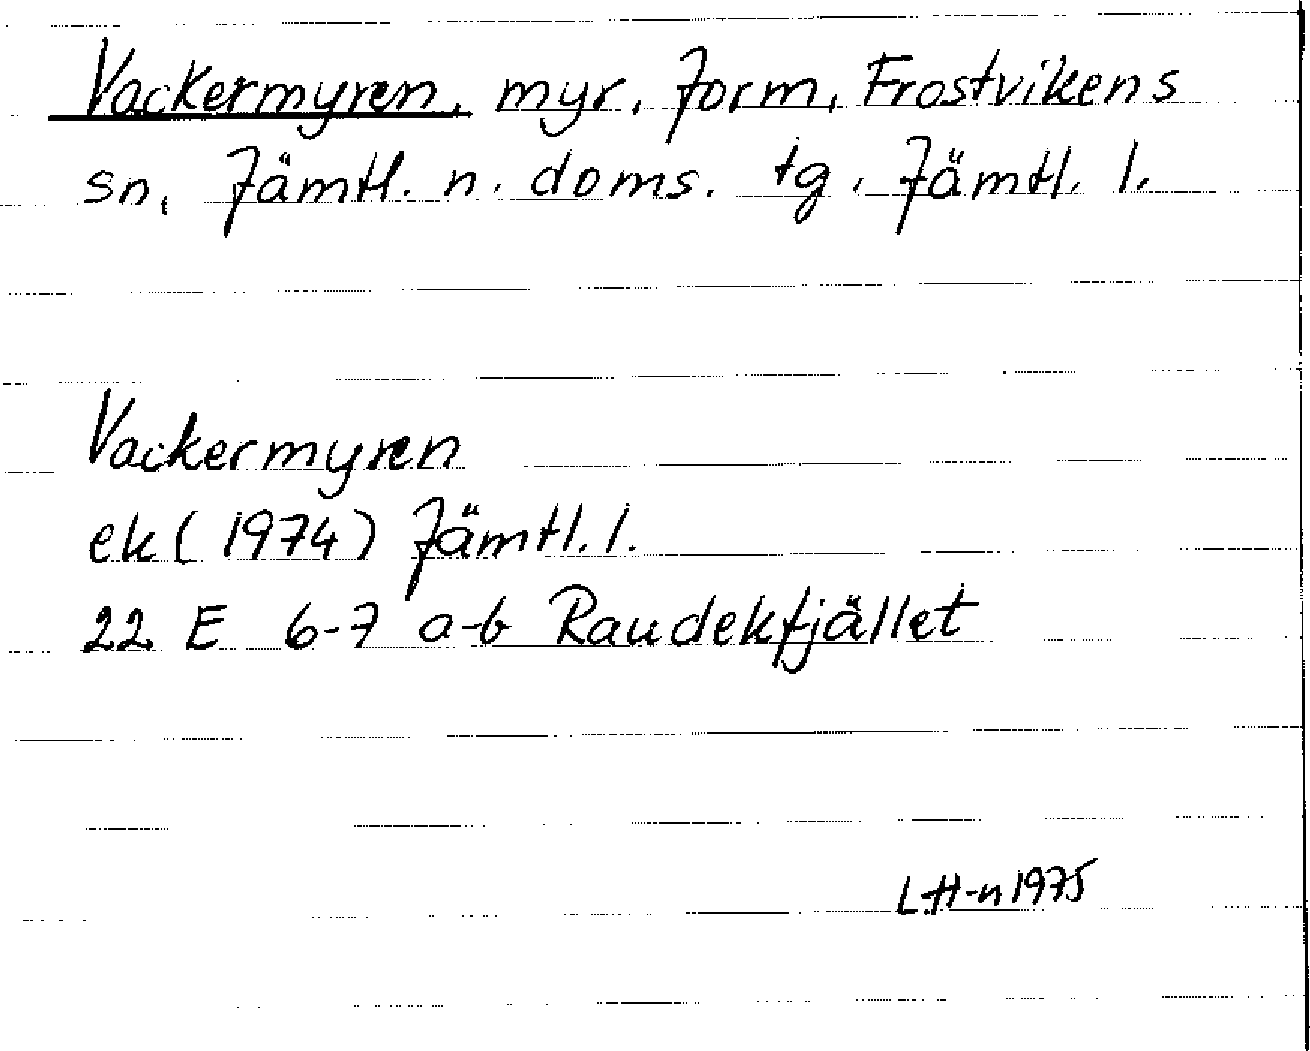 Vackermyren, myr, Jorm, Frostvikens
sn, Jämtl. n. doms. tg, Jämtl. l.
Vackermyren
ek (1974) Jämtl. l.
22 E 6-7 a-b Raudekfjället
L.H-n 1975